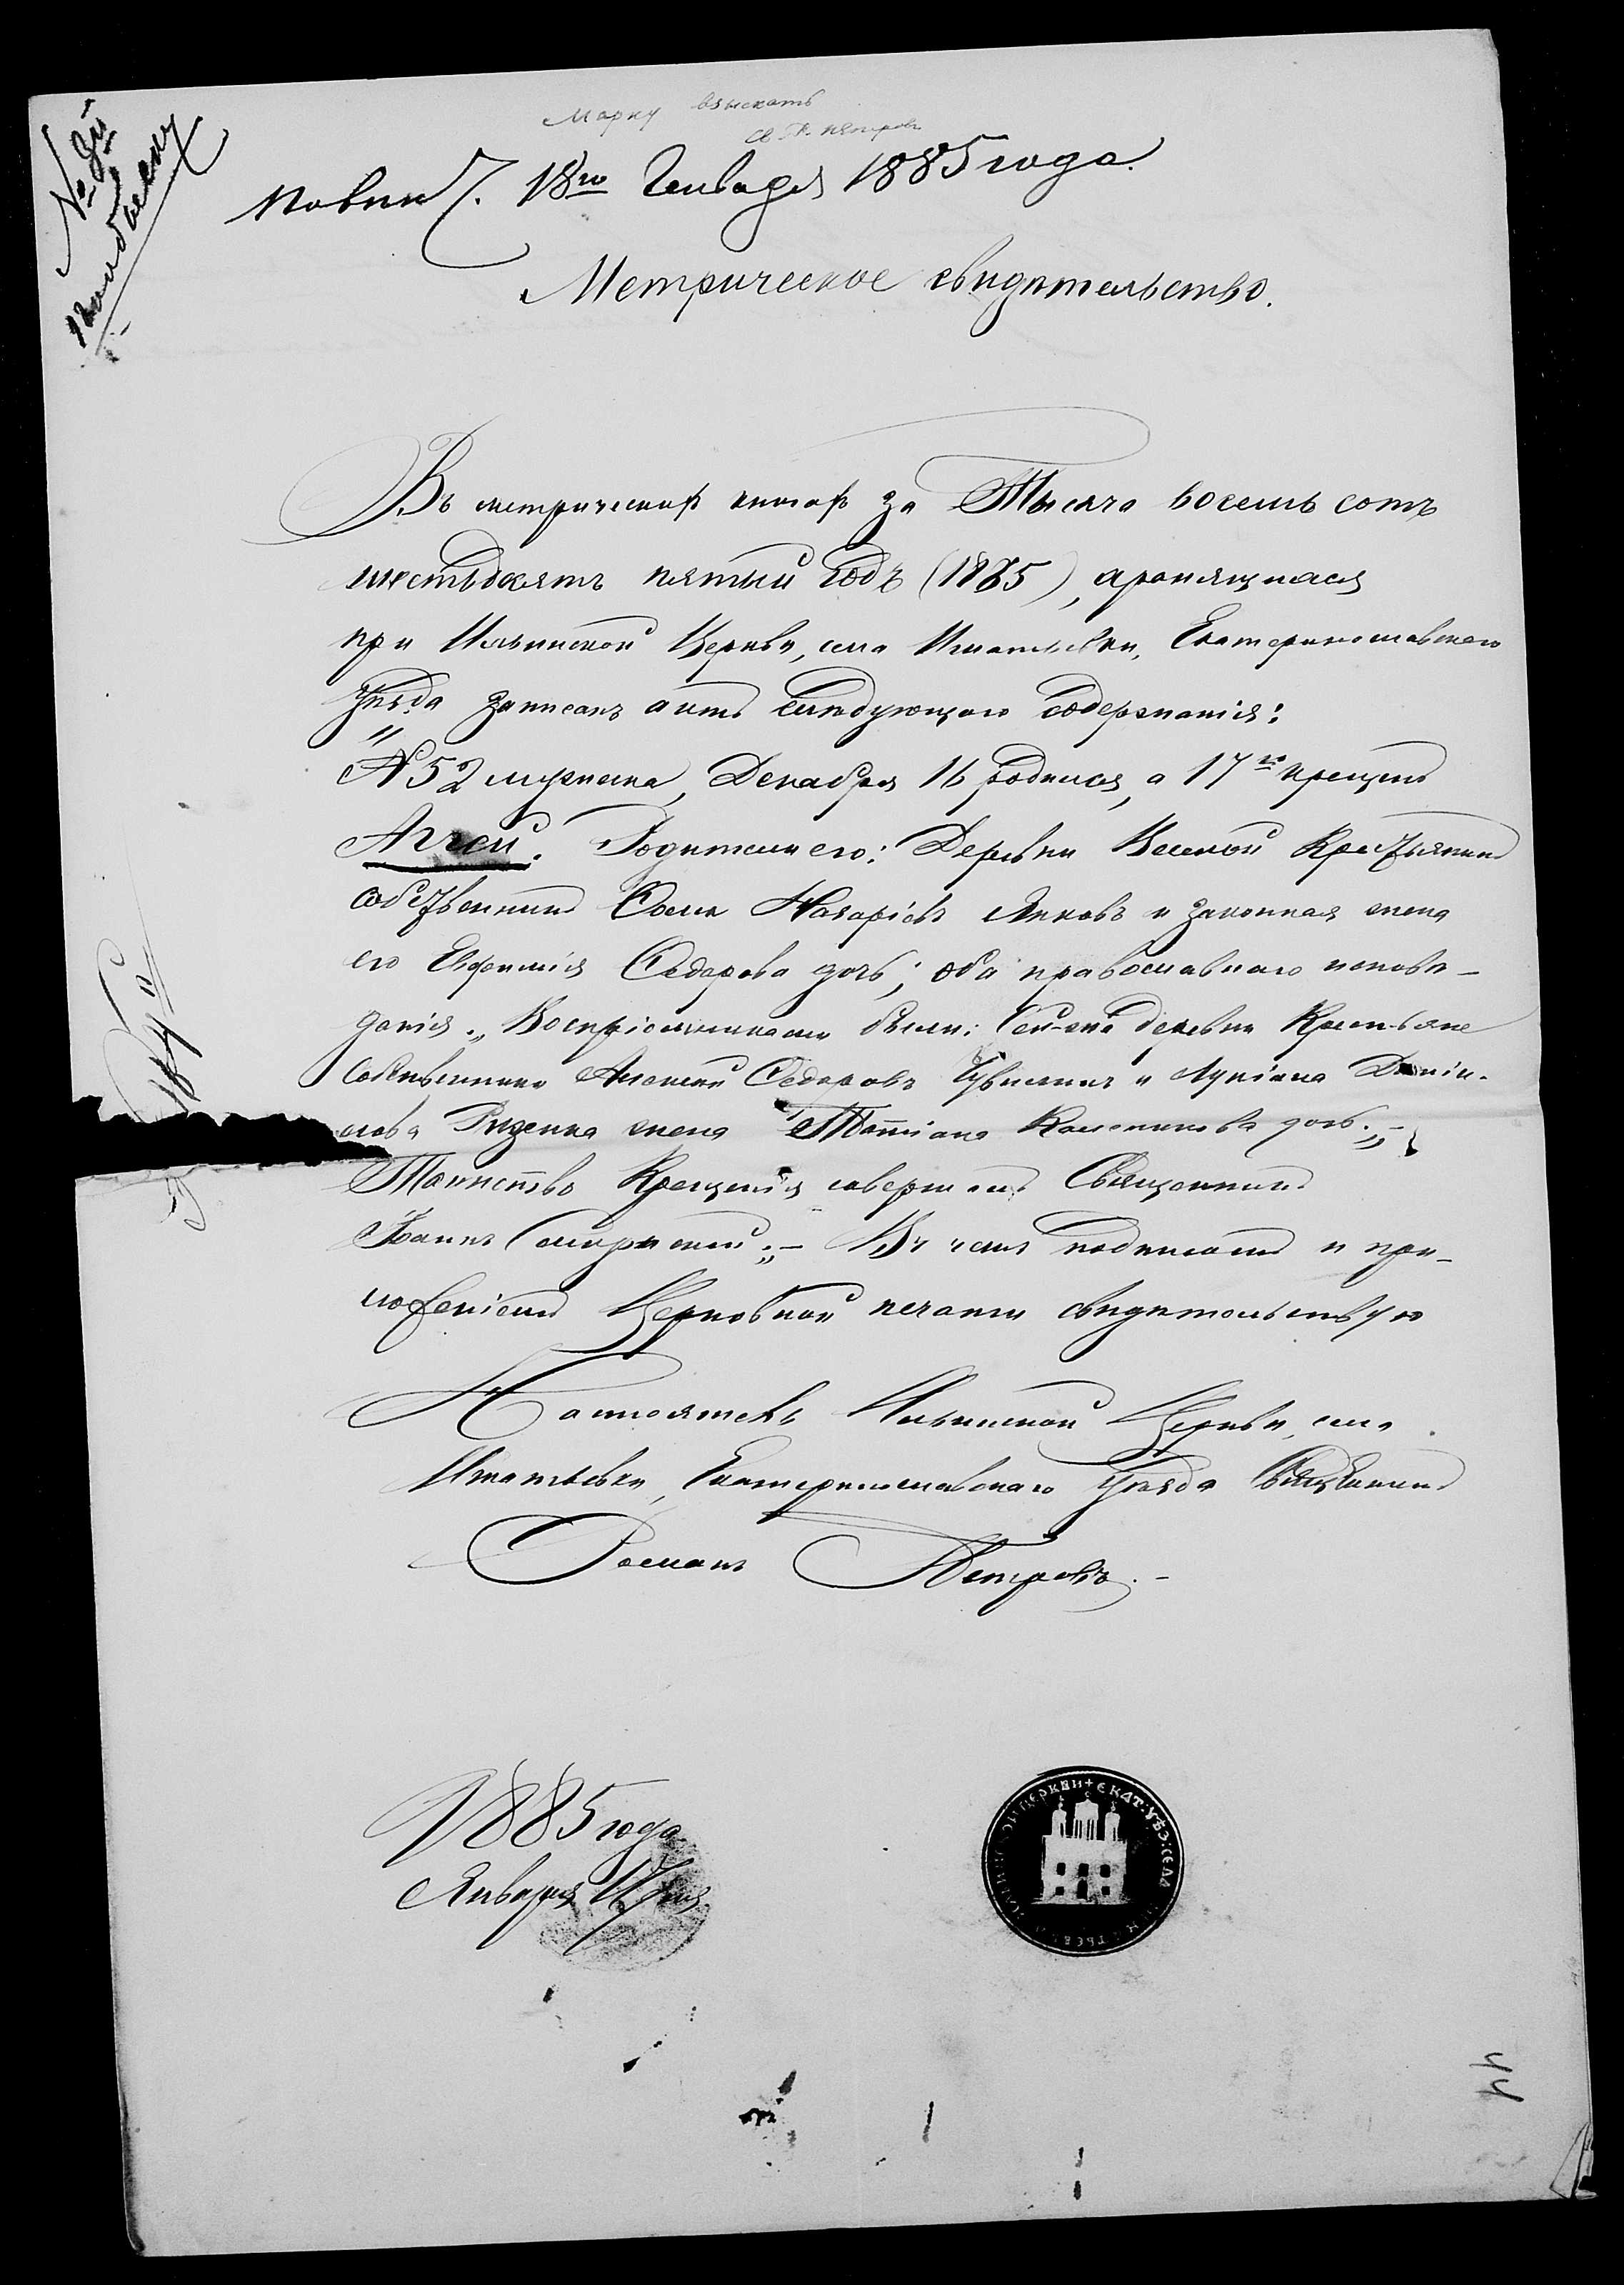 Марку взыскать
Св. Р. Петровъ
18го Генваря 1885 года.
Метрическое свидѣтельство.
Въ метрической книгѣ за Тысяча восемь сотъ
шестьдесятъ пятый годъ (1865), хранящиеся
при Ильинской Церкви, села Игнатьевки, Екатеринославскаго
Уѣзда записанъ актъ слѣдующаго содержанія:
„№ 52 мужеска, Декабря 16 родился, а 17го крещенъ
Аггей. Родители его: Деревни Веселой Крестьянинъ
собственникъ Ѳома Назаріевъ Яковъ и законная жена
его Евфимія Ѳедорова дочь; оба православнаго исповѣ-
данія. Воспріемниками были: Сей-же деревни Крестьяне
Собственники Алексѣй Ѳедоровъ и Лукіана Даніи-
лова жена Татіана дочь.„
Таинство Крещенія совершалъ Священникъ
Іоаннъ „— Въ чемъ подписомъ и при-
ложеніемъ Церковной печати свидѣтельствую
Настоятель Ильинской Церкви, села
Игнатьевки, Екатеринославскаго Уѣзда Священникъ
Романъ Петровъ.-
1885 года
Января 17 дня.
ЦЕРКВИ + ЕКАТ: УѢЗ: СЕЛА